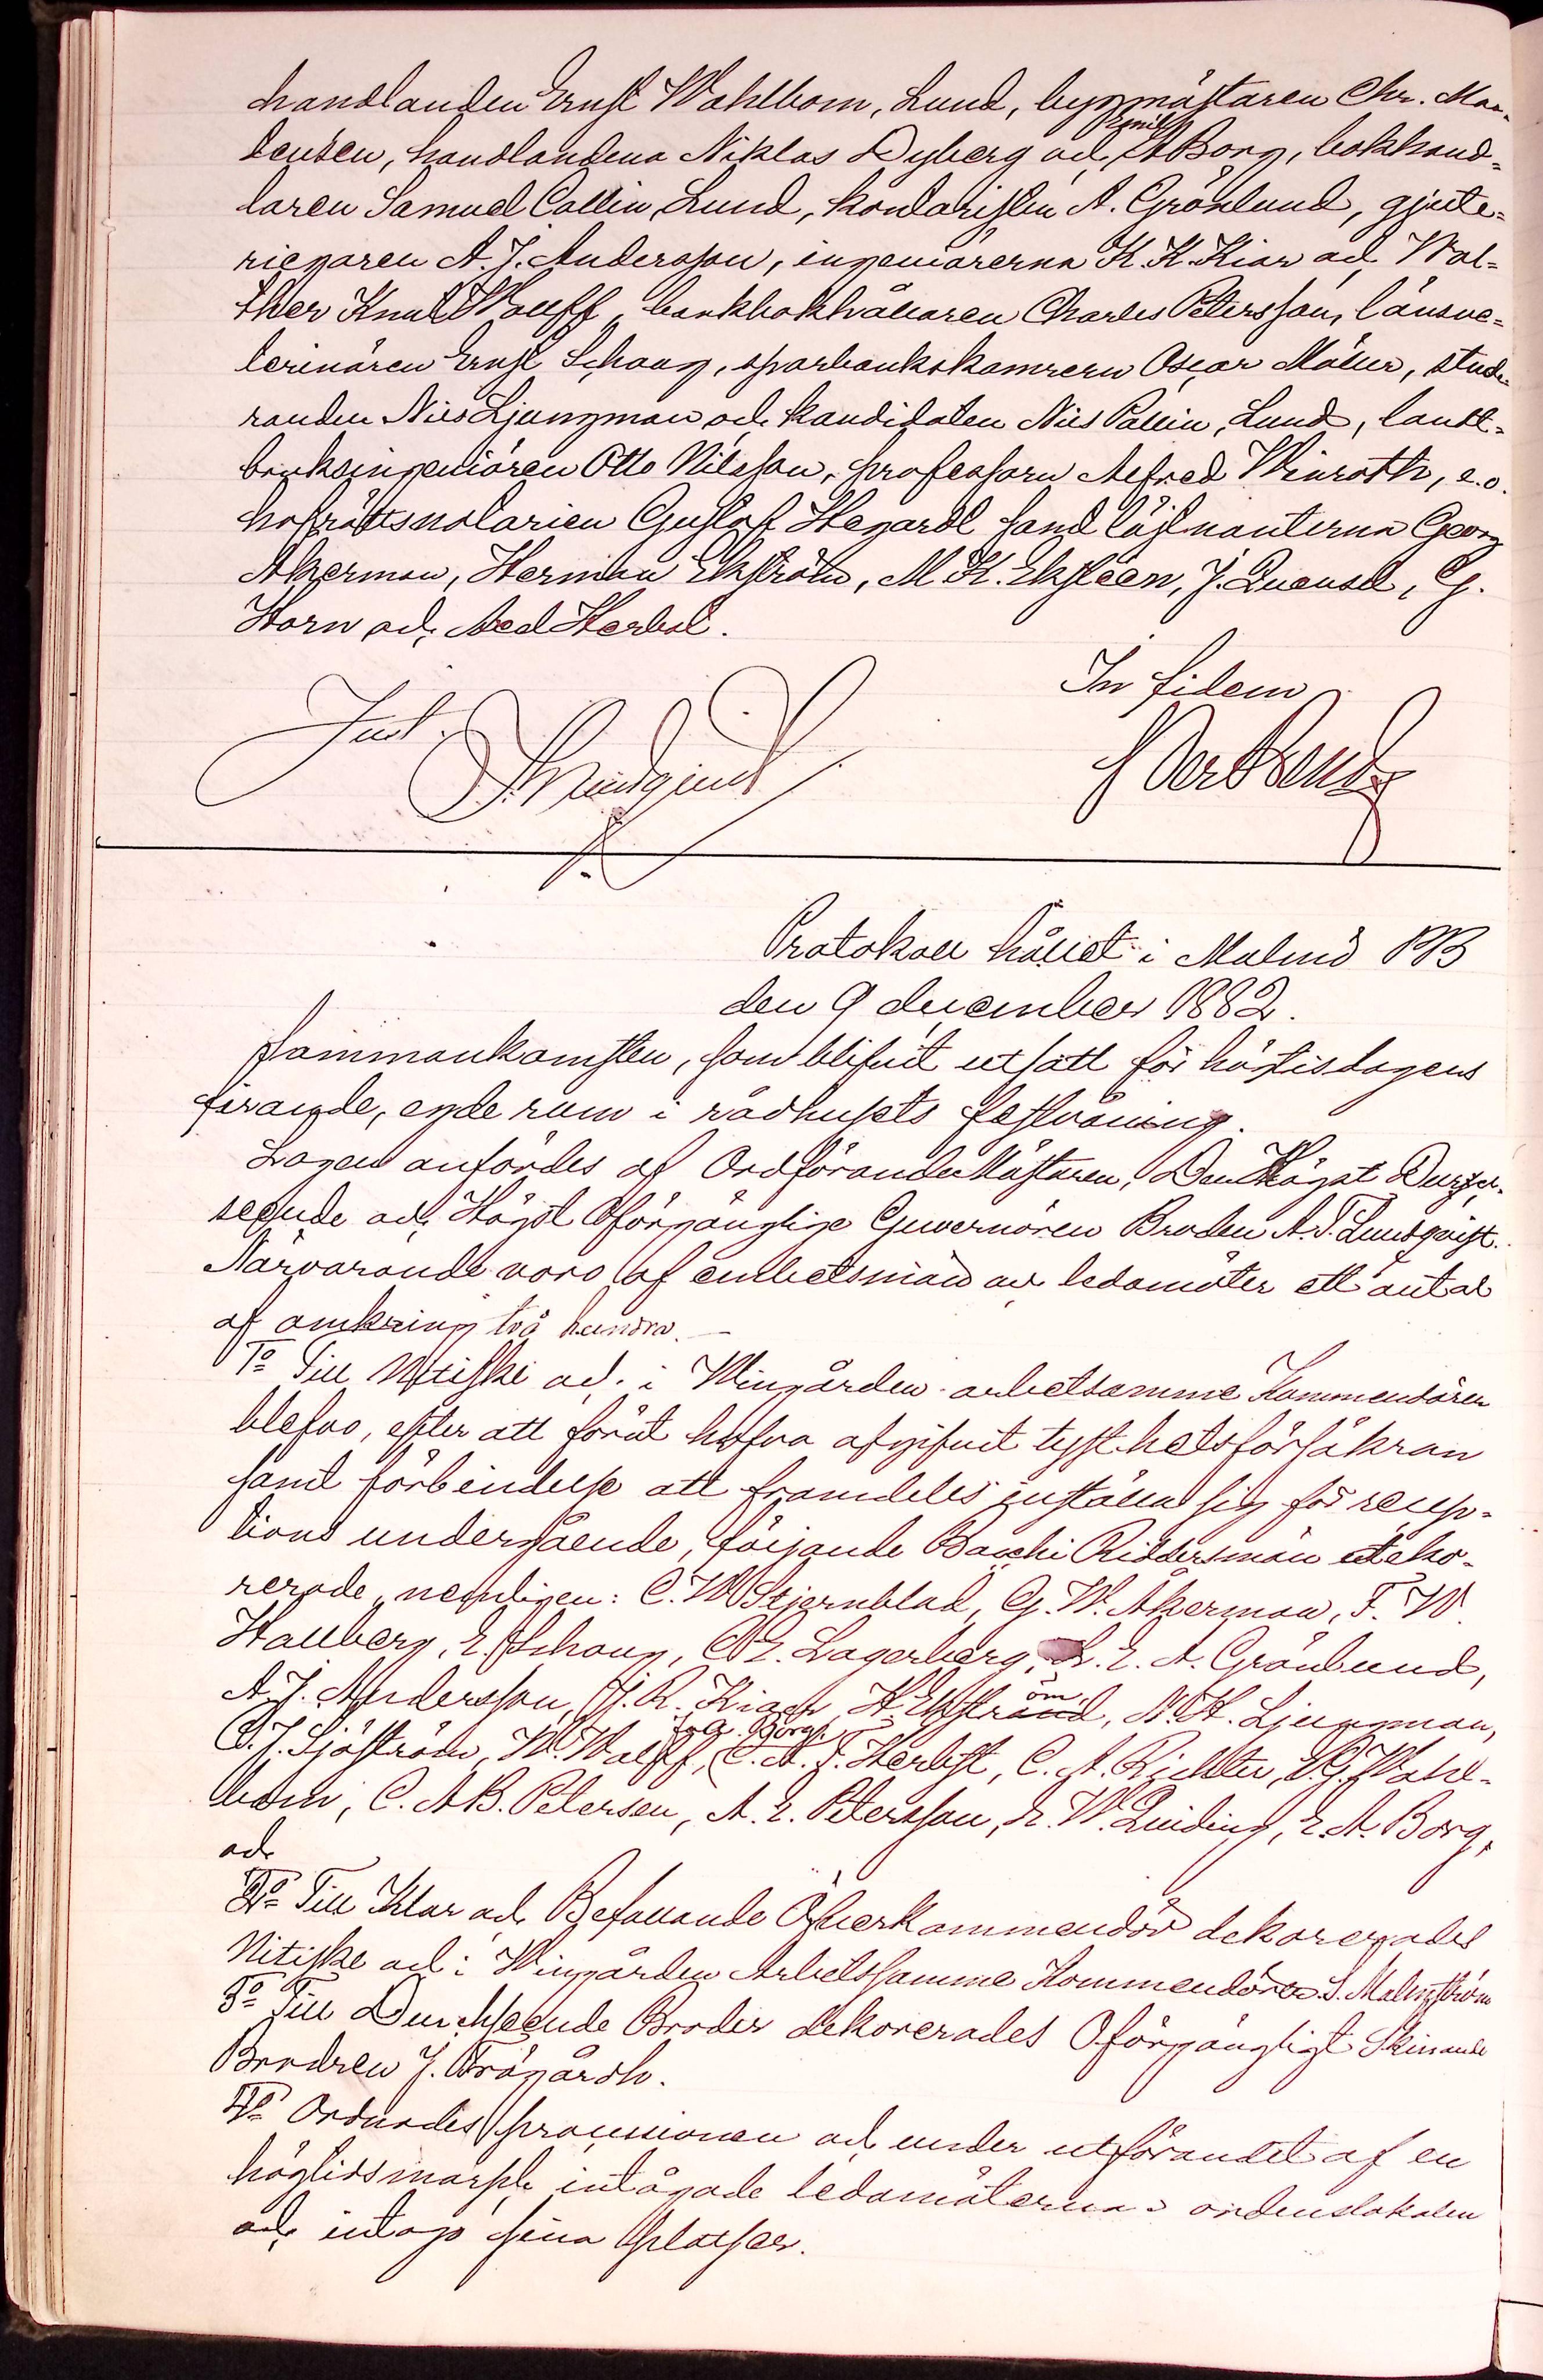 handlanden Ernst Wahlbom, Lund, byggmästaren Chr. Mor-
tensen, handlandena Niklas Dyberg och Emil Borg, bokhand-
laren Samuel Collin, Lund, kontoristen A. Grönlund, gjute-
riegaren A. J. Andersson, ingeniörerna K. K. Kiær och Wal-
ther Knut Wolff, bankbokhållaren Charles Petersson, länsve-
terinären Ernst Schaug, sparbankskamreren Oscar Möller, stude-
randen Nils Ljungman och kandidaten Nils Pallin, Lund, landt-
bruksingeniören Otto Nilsson, professorn Alfred Winroth, e.o.
hofrättsnotarien Gustaf Hegardt samt löjtnanterna Georg
Åkerman, Herman Ekström, M. K. Eksteen, J. Quensel, G.
Horn och Axel Herbst.
In fidem
Just.
Protokoll hållet i Malmö PB
den 9 december 1882.
Sammankomsten, som blifvit utsatt för högtidsdagens
firande, egde rum i rådhusets festvåning.
Logen anfördes af OrdförandeMästaren, Den Högst Durch-
seende och Högst Oförgänglige Guvernören Brodern A. T. Lundqvist.
Närvarande voro af embetsmän och ledamöter ett antal
af omkring två hundra.
1o Till Nitiske och i Wingården arbetsamme Kommendörer
blefvo, efter att förut hafva afgifvit tysthetsförsäkran
samt förbindelse att framdeles inställa sig för recep-
tions undergående, följande Bacchi Riddersmän deko-
rerade, nemligen: C. W. Stjernblad, G. W. Åkerman, F. W.
Hallberg, E. Schaug, C. E. Lagerberg, L. E. A. Grönlund,
A. J. Andersson, J. R. Kiær, H. Ekström, N. H. Ljungman,
C. J. Sjöström, W. Wolff, C. A. F. Herbst, C. A. Richter, E. G. Wahl-
bom, C. A. B. Petersen, A. E. Petersson, E. W. Quiding, E. A. Borg,
och
2o Till Klar och Befallande Öfverkommendör dekorerades
Nitiske och i Wingården Arbetssamme Kommendören S. Malmström
3o Till Durchseende Broder dekorerades Oförgängligt Skinande
Brodren J. Trägårdh.
4o Ordnades processionen och under utförandet af en
högtidsmarsch intågade ledamöterna i ordenslokalen
och intogo sina platser.